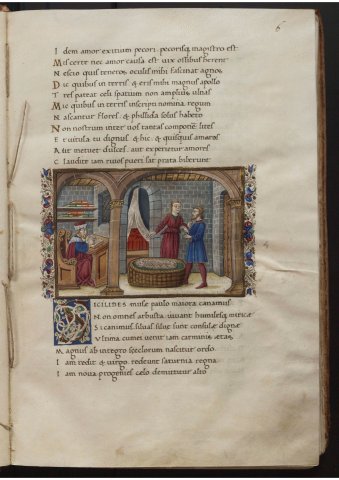 6
I dem amor exitium pecori: pecorisq; magistro est
M is certe nec amor causa est uix ossibus herent
N escio quis teneros oculis mihi fascinat agnos
D ic quibus in terris & eris mihi magnus apollo
T res pateat celi spatium non amplius ulnas
D ic quibus in terris inscripti nomina regum
N ascantur flores: & phillida solus habeto
N on nostrum inter uos tantas componere lites
E t uitula tu dignus: & hic: & quisquis amores
A ut metuet dulces: aut experietur amaros
C laudite iam riuos pueri sat prata biberunt
SICILIDES muse paulo maiora canamus
N on omnes arbusta iuuant humilesq; mirice
S i canimus siluas silue sint consule digne
V ltima cumei uenit iam carminis aetas
M agnus ab integro seclorum nascitur ordo
I am redit & uirgo redeunt saturnia regna
I am noua progenies caelo demittitur alto